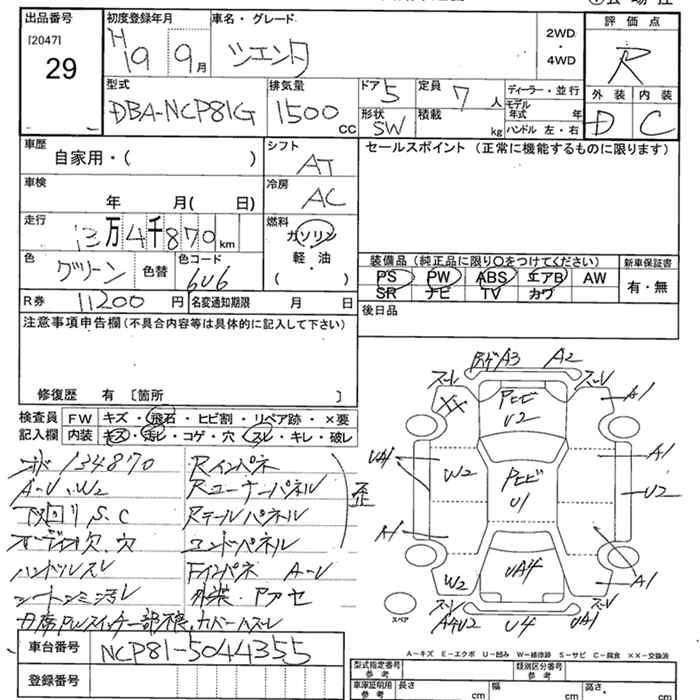 出品番号
[2047]
29
初度登録年月
H19 9月
車名・グレード
シエンタ
2WD
・
4WD
評価点
R
外装 内装
D C
型式
DBA-NCP81G
排気量
1500 CC
ドア 5
形状 SW
定員 7 人
積載 kg
ディーラー・並行
モデル
年式 年
ハンドル 左・右
車歴
自家用・( )
シフト
AT
セールスポイント (正常に機能するものに限ります)
車検
年 月( 日)
冷房
AC
走行
13万4千870km
燃料
ガソリン
軽・油
( )
色
グリーン
色替
色コード
6U6
装備品(純正品に限り○をつけてください)
PS PW ABS エアB AW
SR ナビ TV カワ
新車保証書
有・無
R券 11200円
名変通知期限 月 日
後日品
注意事項申告欄(不具合内容等は具体的に記入して下さい)
修復歴 有 〔箇所 〕
検査員
記入欄
FW キズ・飛石・ヒビ割・リペア跡・×要
内装 キズ・汚レ・コゲ・穴・スレ・キレ・破レ
134870
A-U、W2
下回りS、C
オーディオ欠、穴
ハンドルスレ
Rインパネ
Rコーナーパネル
Rテールパネル
エンドパネル
Fインパネ A-U
歪
A3 A2
スーレ スーレ
XX
PヒビU2
A1
UA1
W2
PヒビU1
A1
U2
A1
W2
UA4
A1
スーレ スーレ
A4U2 U4 UA1
スペア
A－キズ E－エクボ U－凹み W－補修跡 S－サビ C－腐食 ××－交換済
車台番号 NCP81-5044355
登録番号
型式指定番号
参考
類別区分番号
参考
車庫証明用
参考
長さ cm
幅 cm
高さ cm